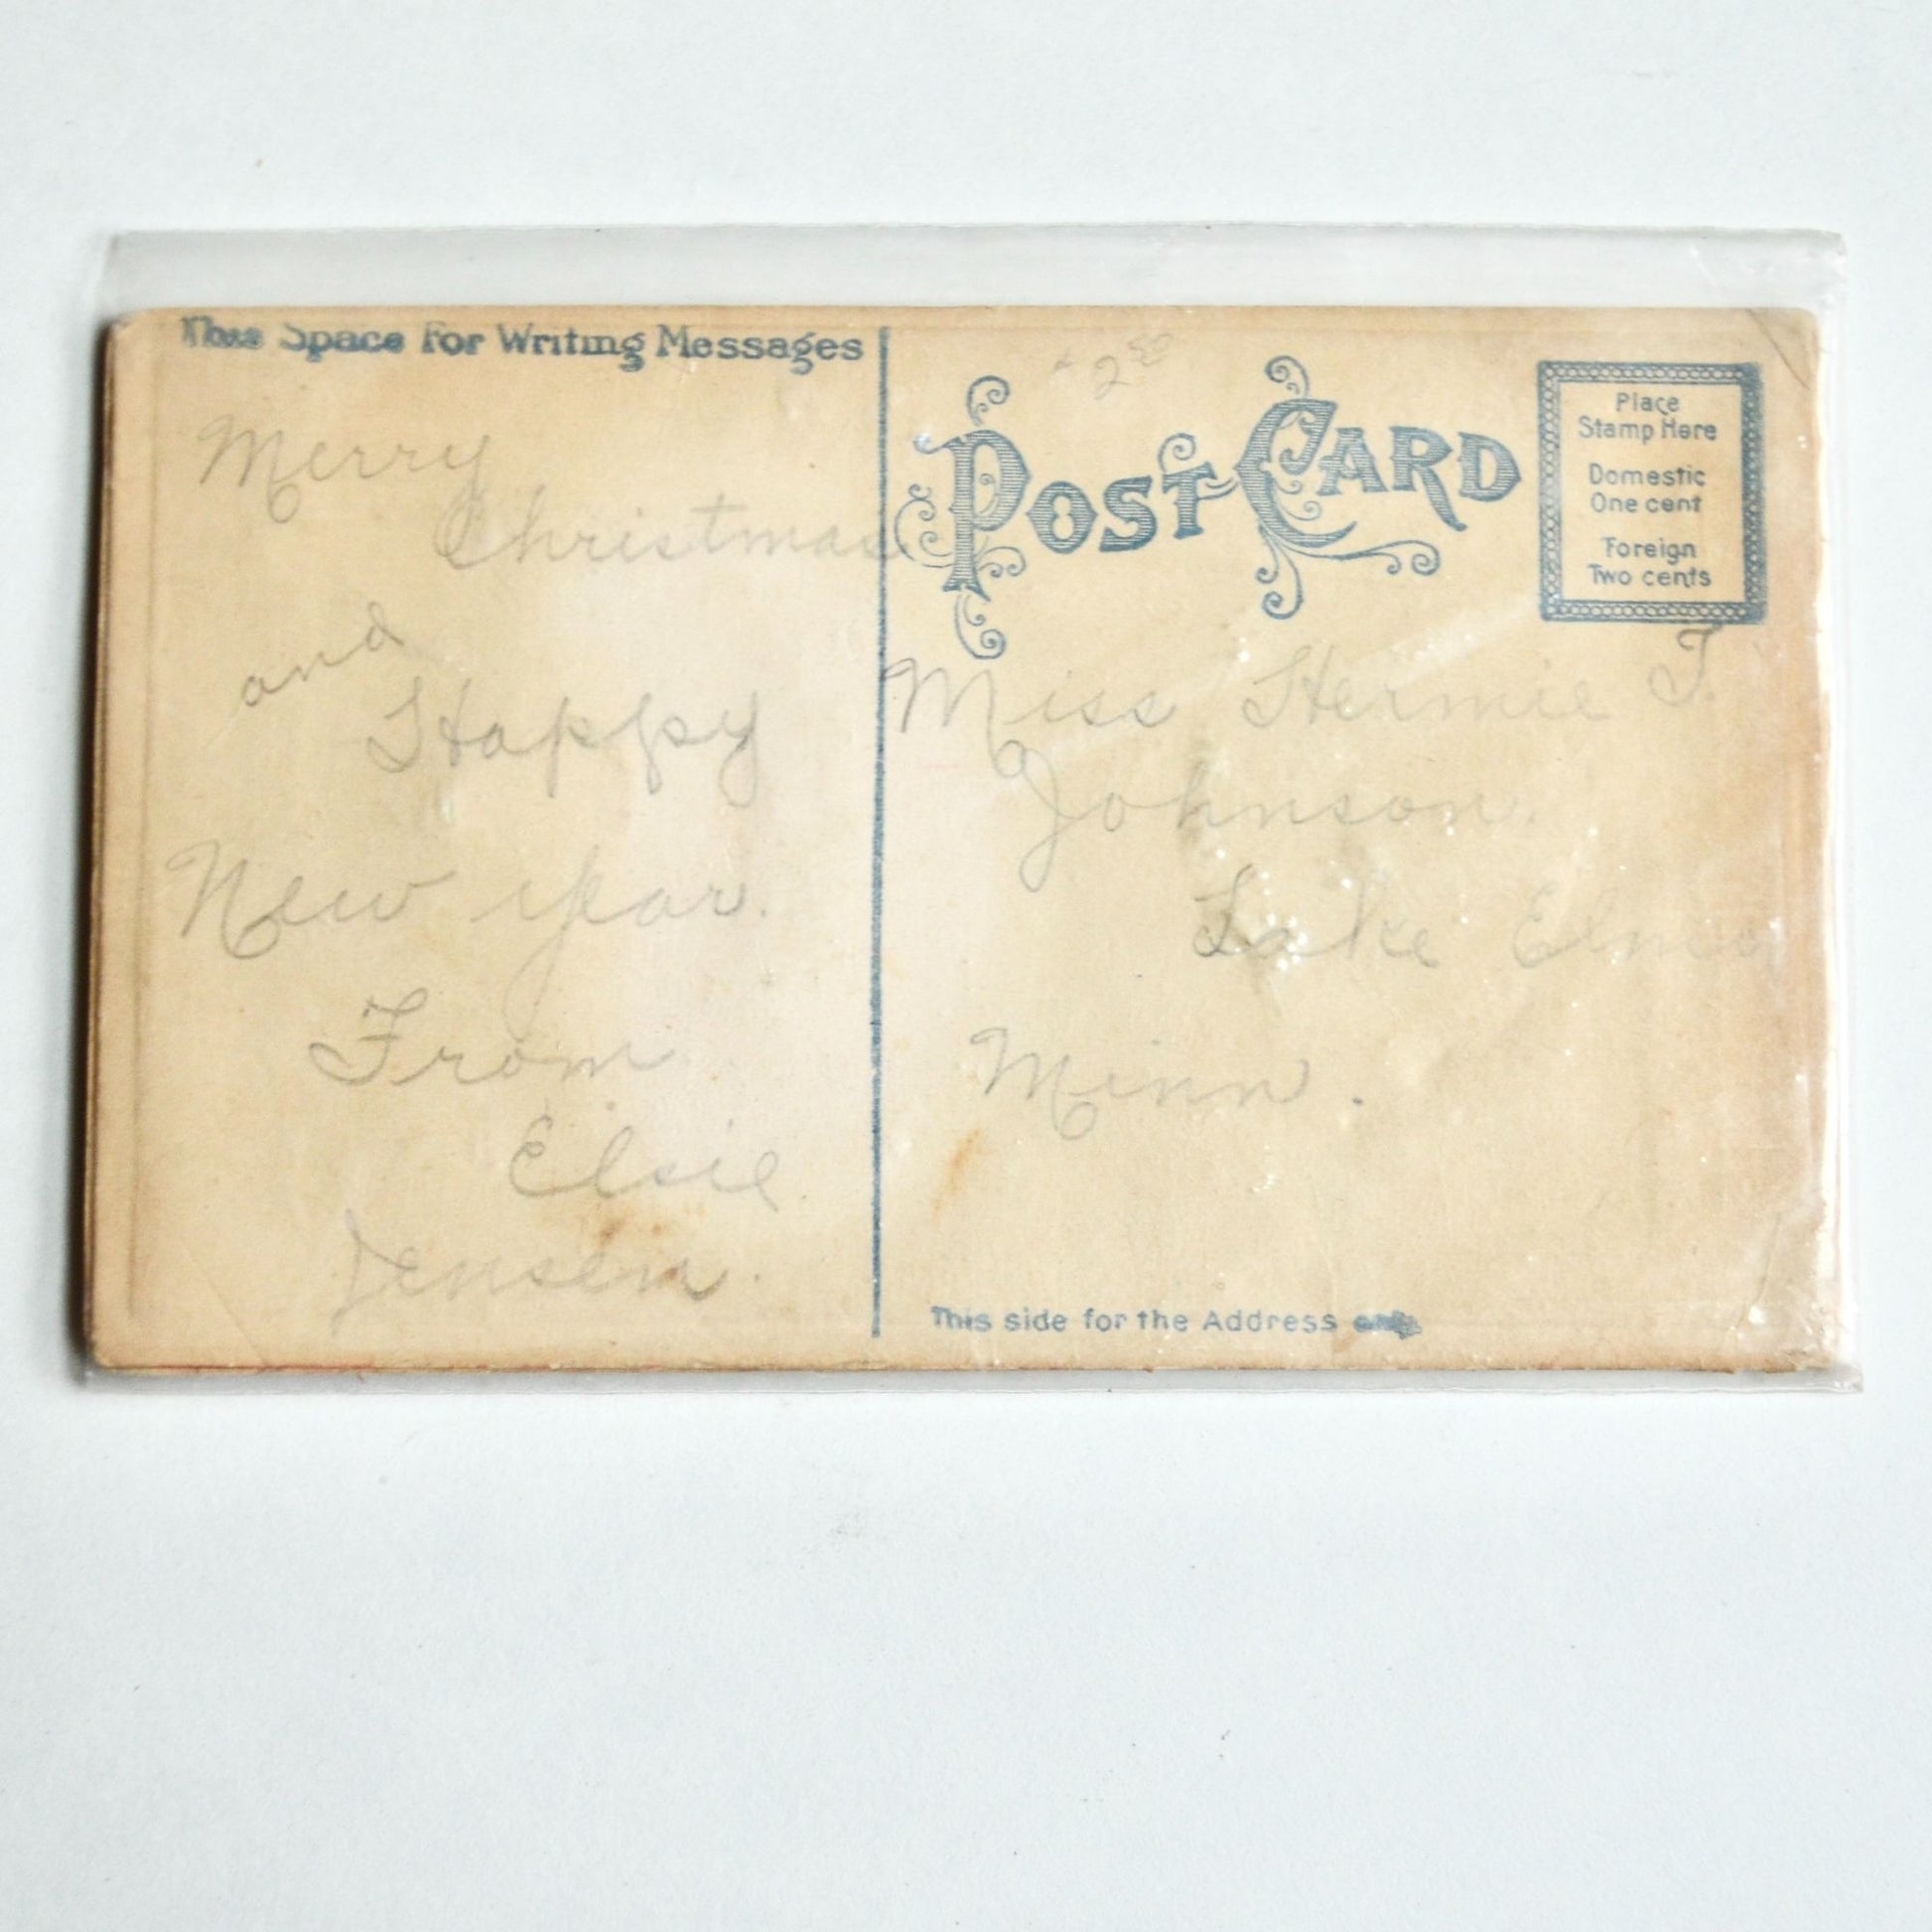 This Space For Writing Messages
Merry
Christmas
and
Happy
New year.
From
Elsie
Jensen.
2 50
POST CARD
Place
Stamp Here
Domestic
One cent
Foreign
Two cents
Miss Hermie T.
Johnson.
Lake Elmo
Minn.
This side for the Address only